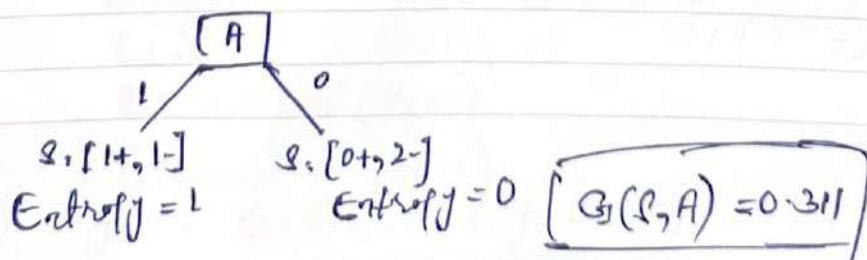 A
1 0
S: [1+, 1-] S: [0+, 2-]
Entropy = 1 Entropy = 0 G(S, A) = 0.311